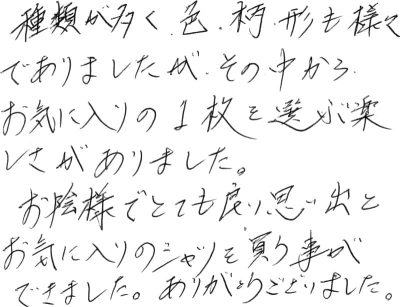 種類が多く、色、柄、形も様々
でありましたが、その中から、
お気に入りの1枚を選ぶ楽
しさがありました。
お陰様でとても良い思い出と
お気に入りのシャツを買う事が
できました。ありがとうございました。